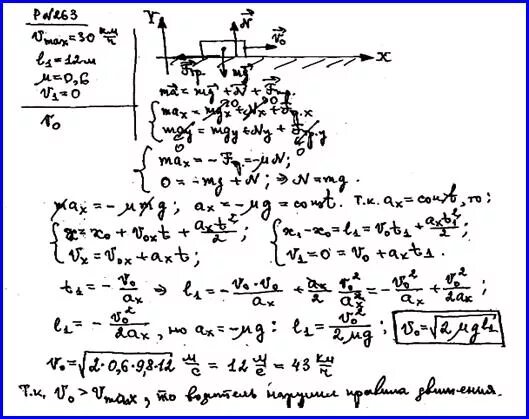 P №263
v_max = 30 км/ч
l₁ = 12 м
μ = 0,6
v₁ = 0
v₀
Y N⃗ v⃗₀
F⃗тр. mg⃗ X
ma⃗ = mg⃗ + N⃗ + F⃗тр.
{ maₓ = mgₓ + Nₓ + Fтр.x
0 0
{ ma_y = mg_y + N_y + Fтр.y
0 0
{ maₓ = - Fтр. = - μN;
{ 0 = - mg + N; ⇒ N = mg.
maₓ = - μmg; aₓ = - μg = const. Т.к. aₓ = const, то:
{ x = x₀ + v₀ₓt + aₓt²/2; { x₁ - x₀ = l₁ = v₀t₁ + aₓt₁²/2;
{ vₓ = v₀ₓ + aₓt; { v₁ = 0 = v₀ + aₓt₁.
t₁ = - v₀/aₓ ⇒ l₁ = - v₀·v₀/aₓ + aₓ/2 v₀²/aₓ² = - v₀²/aₓ + v₀²/2aₓ;
l₁ = - v₀²/2aₓ, но aₓ = -μg: l₁ = v₀²/2μg; v₀ = √2μgl₁
v₀ = √2·0,6·9,8·12 м/с = 12 м/с = 43 км/ч
Т.к. v₀ > v_max, то водитель нарушил правила движения.